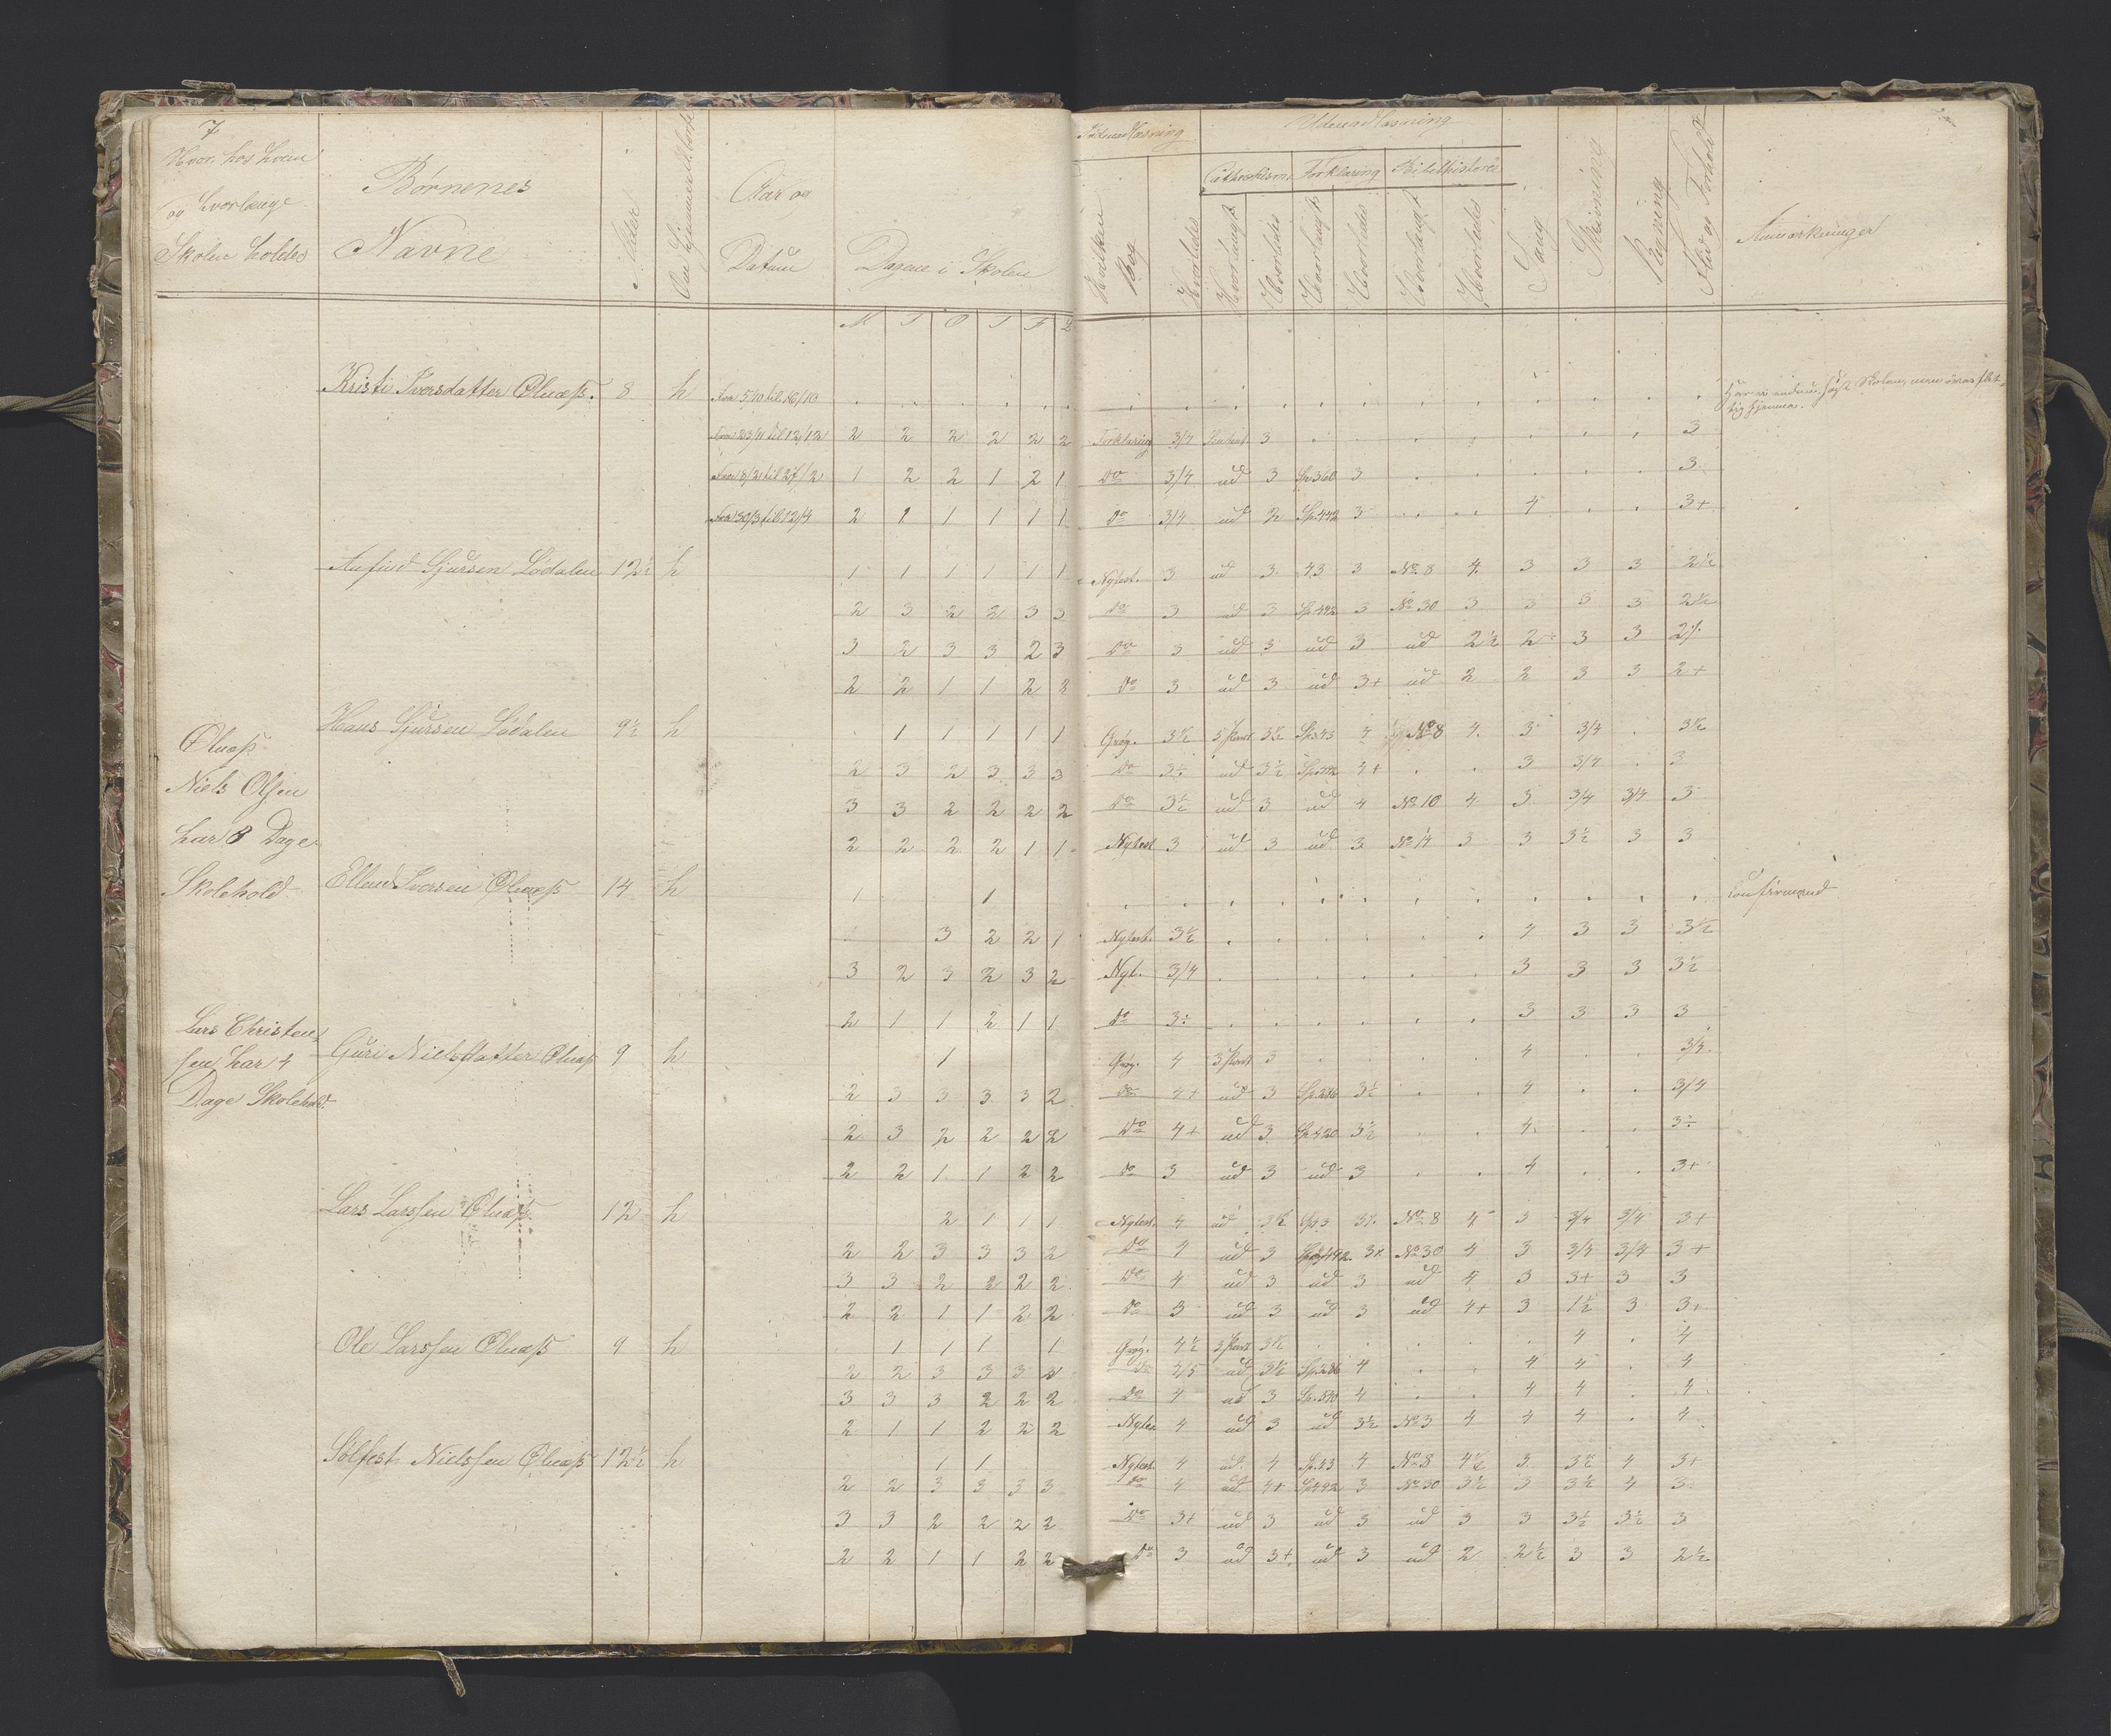 7
Hvor, hos hvem
og hvorlænge
Skolen holdes
Børnenes
Navne
Alder
Om hjemme el. borte
Aar og
Datum
Dagene i Skolen
M T O T F L
Indenad Læsning
Hvilken Bog
Hvorledes
Udenad Læsning
Cathekism. Forklaring Bibelhistorie
Hvorlangt Hvorledes Hvorlangt Hvorledes Hvorlangt Hvorledes
Sang
Skrivning
Regning
Flid og Forhold
Anmærkninger
Kristi Iversdatter Olnæß. 8 h Fra 5/10 til 16/10
Har ei endnu søgt Skolen, men øves flit-
tig hjemme.
Fra 23/11 til 12/12 2 2 2 2 2 2 Forklaring 3/4 3 3
Fra 8/2 til 27/2 1 2 2 1 2 1 Do 3/4 ud 3 Sp.360 3 3
Fra 30/3 til 12/4 2 1 1 1 1 1 Do 3/4 ud 2 Sp.442 3 4 3+
Anfind Sjursen Lødalen 12½ h 1 1 1 1 1 1 Nytest. 3 ud 3 43 3 No 8 4 3 3 3 2½
2 3 2 2 3 3 Do 3 ud 3 Sp.492 3 No 30 3 3 3 3 2½
3 2 3 3 2 3 Do 3 ud 3 ud 3 ud 2½ 2÷ 3 3 2%
2 2 1 1 2 2 Do 3 ud 3 ud 3+ ud 2 2 3 3 2+
Hans Sjursen Lødalen 9½ h 1 1 1 1 1 Grøg. 3½ 5 Part 3½ Sp.43 4 No 8 4 3 3/4 3½
2 3 2 3 3 3 Do 3½ ud 3½ 4+ 3 3/4 3
3 3 2 2 2 2 Do 3½ ud 3 ud 4 No 10 4 3 3/4 3/4 3
2 2 2 2 1 1 Nytest 3 ud 3 ud 3 No 14 3 3 3½ 3 3
Olnæß.
Niels Olsen
har 8 Dage
Skolehold
Ellend Iversen Olnæß 14 h 1 1 Confirmand
3 2 2 1 Nytest. 3½ 4 3 3 3½
3 2 3 2 3 2 Nyt. 3/4 3 3 3 3½
2 1 1 2 1 1 Do 3÷ 3 3 3 3
Lars Christen-
sen har 4
Dage Skolehold.
Guri Nielsdatter Olnæß 9 h 1 Grøg. 4 3 Part 3 4 3/4
2 3 3 3 3 2 Do 4+ ud 3 Sp.286 3½ 4 3/4
2 3 2 2 2 2 Do 4+ ud 3 Sp.420 3½ 4 3÷
2 2 1 1 2 2 Do 3 ud 3 ud 3 4 3+
Lars Larssen Olnæß 12 h 2 1 1 1 Nytest. 4 ud 3½ Sp.43 3% No 8 4 3 3/4 3/4 3+
2 2 3 3 3 2 Do 4 ud 3 492 3% No 30 4 3 3/4 3/4 3+
3 3 2 2 2 2 Do 4 ud 3 ud 3 ud 4 3 3+ 3 3
2 2 1 1 2 2 Do 3 ud 3 ud 3 ud 4+ 3 1½ 3 3+
Ole Larssen Olnæß 9 h 1 1 1 1 Grøg. 4½ 3 Part 3½ 4 4
2 2 3 3 3 Do 4/5 ud 3½ Sp.286 4 4 4 4
3 3 3 2 2 2 Do 4 ud 3 Sp.540 4 4 4 4
2 1 1 2 2 2 Nytes. 4 ud 3 ud 3½ No 3 4 4 4 4
Sølfest Nielssen Olnæß 12½ h 1 1 Nytest. 4 ud 4 Sp.43 4 No 8 4½ 3 3½ 4 3+
2 2 3 3 3 3 Do 4 ud 4+ Sp.492 3 No 30 3½ 3 3½ 4 3
3 3 2 2 2 2 Do 3+ ud 3 ud 3 ud 3 3 3½ 3½ 3
2 2 1 1 2 2 Do 3 ud 3+ ud 3 ud 2 2½ 3 3 2½